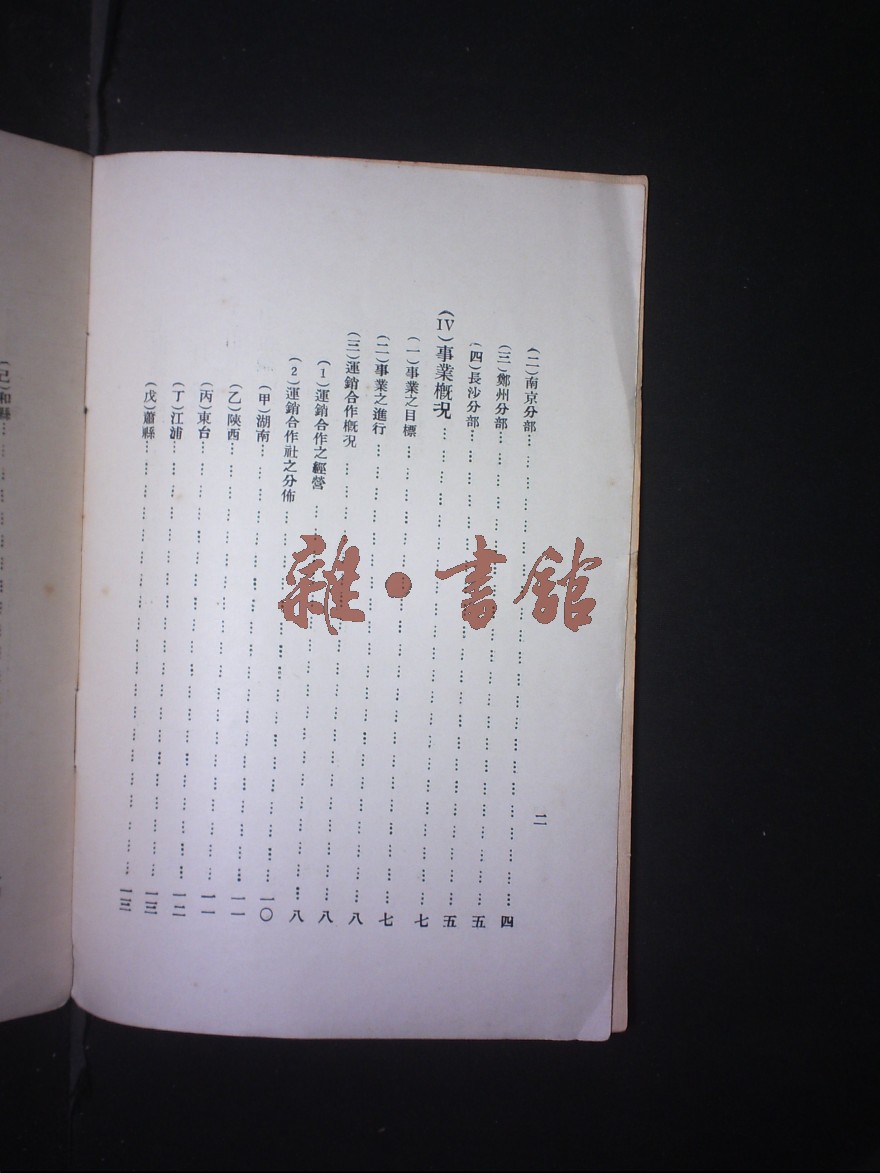 二
(二)南京分部……………………………………四
(三)鄭州分部……………………………………五
(四)長沙分部……………………………………五
(IV)事業概况……………………………………七
(一)事業之目標……………………………………七
(二)事業之進行……………………………………八
(三)運銷合作概况……………………………………八
(1)運銷合作之經營……………………………………八
(2)運銷合作社之分佈……………………………………一〇
(甲)湖南……………………………………一一
(乙)陝西……………………………………一一
(丙)東台……………………………………一二
(丁)江浦……………………………………一三
(戊)蕭縣……………………………………一三
(己)和縣……………………………………
雜·書館